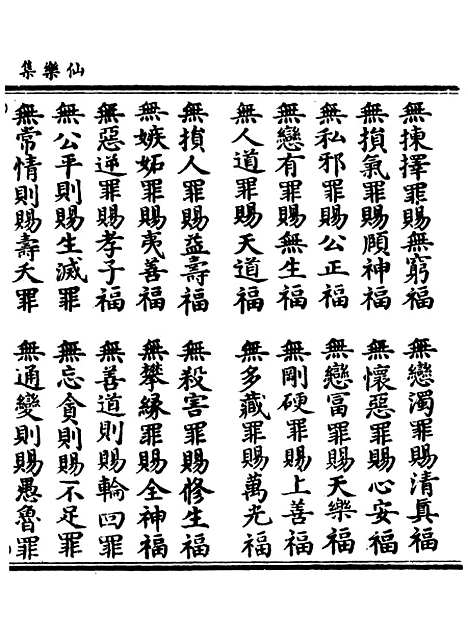 仙樂集
無揀擇罪賜無窮福　無戀濁罪賜清真福
無損氣罪賜頤神福　無懷惡罪賜心安福
無私邪罪賜公正福　無戀冨罪賜天樂福
無戀有罪賜無生福　無剛硬罪賜上善福
無人道罪賜天道福　無多藏罪賜萬光福
無損人罪賜益壽福　無殺害罪賜修生福
無嫉妬罪賜夷善福　無攀緣罪賜全神福
無惡逆罪賜孝子福　無善道則賜輪回罪
無公平則賜生滅罪　無忘貪則賜不足罪
無常情則賜壽夭罪　無通變則賜愚魯罪